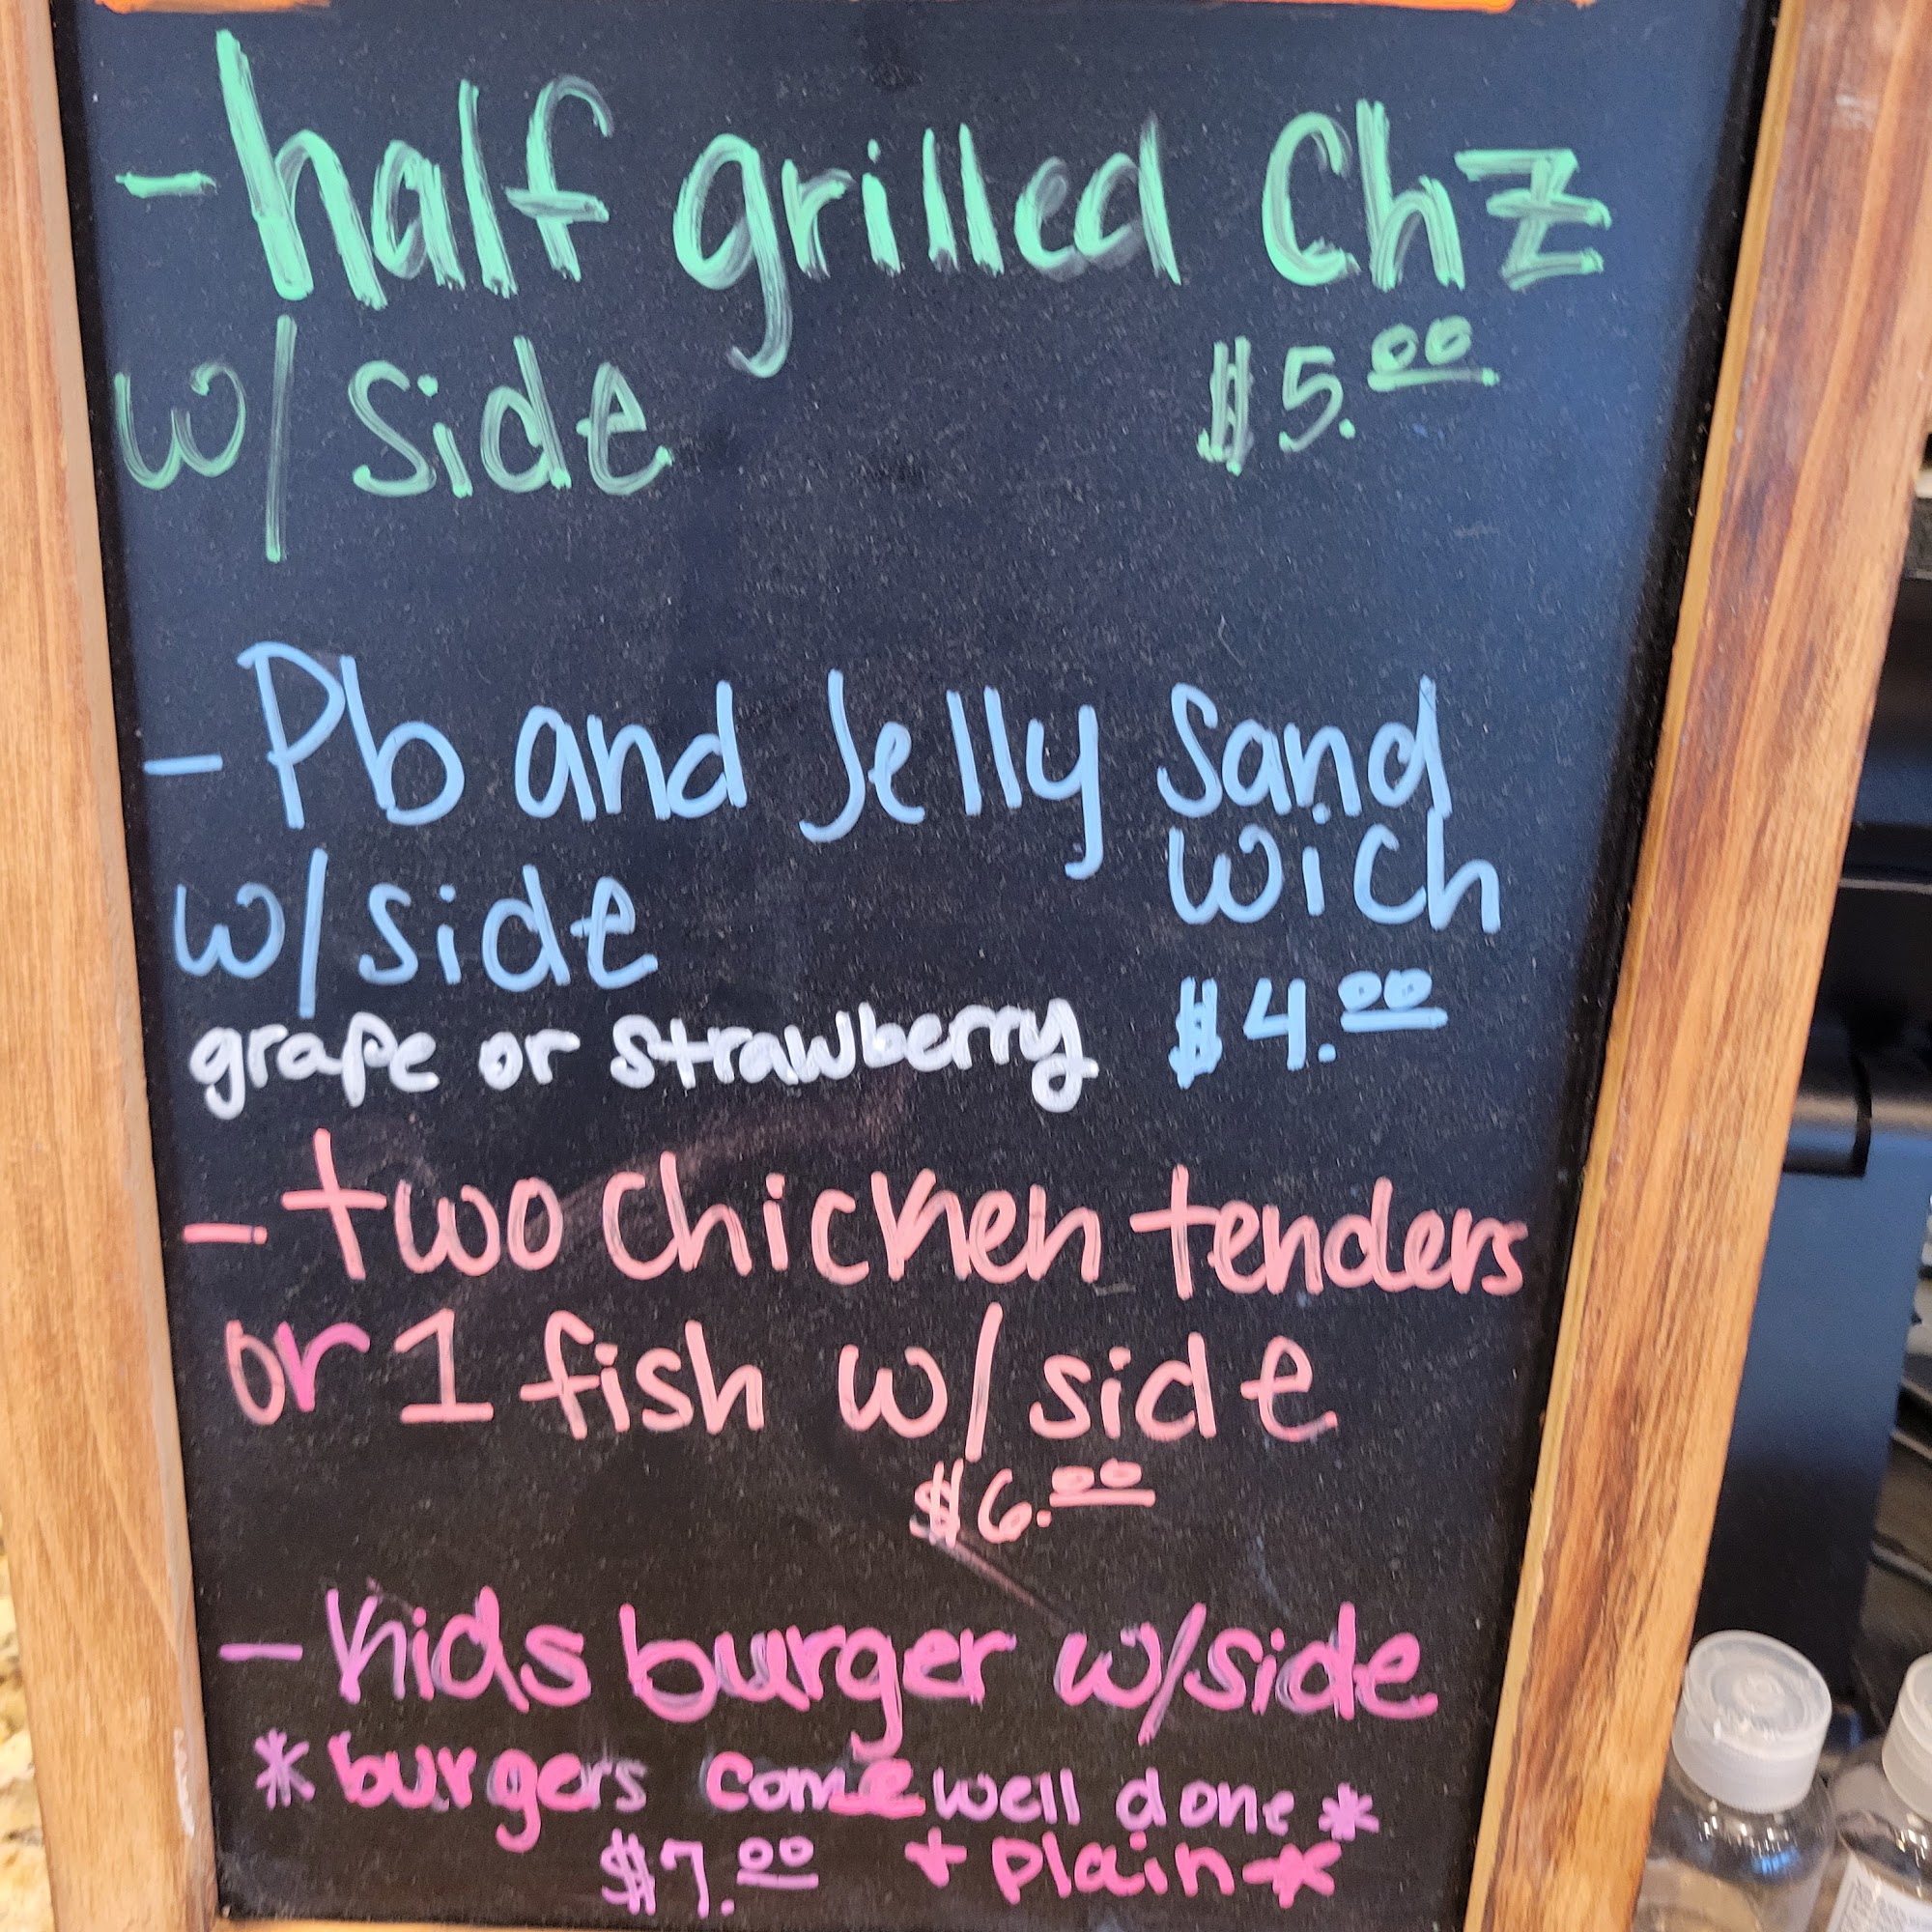 - half grilled Chz
w/ side $5.00
- Pb and Jelly Sand
wich
w/ side
grape or strawberry $4.00
- two chicken tenders
or 1 fish w/ side
$6.00
- Kids burger w/side
* burgers come well done *
$7.00 + plain *